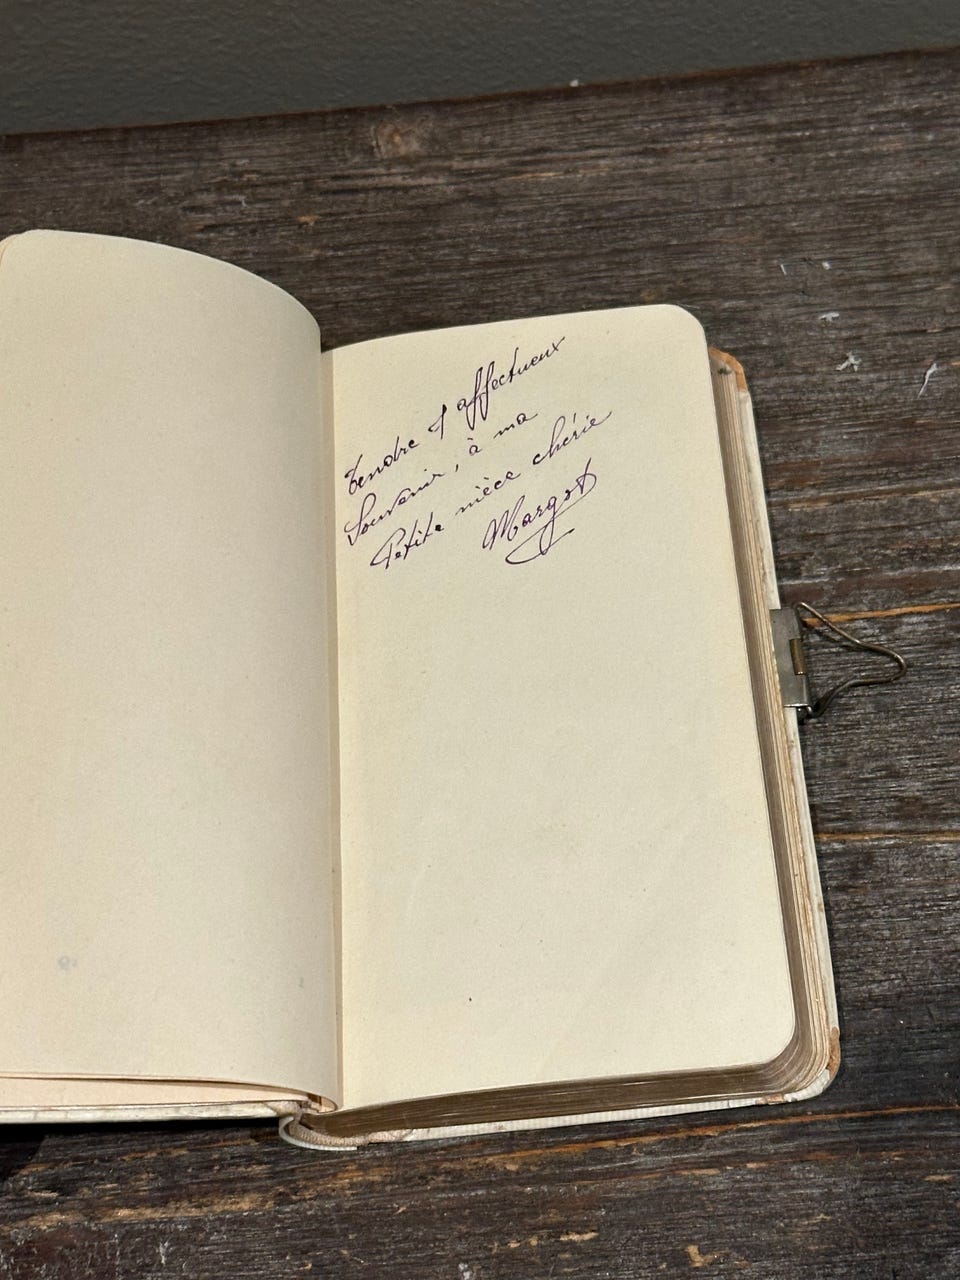 Tendre & affectueux
Souvenir, à ma
Petite nièce chérie
Margot